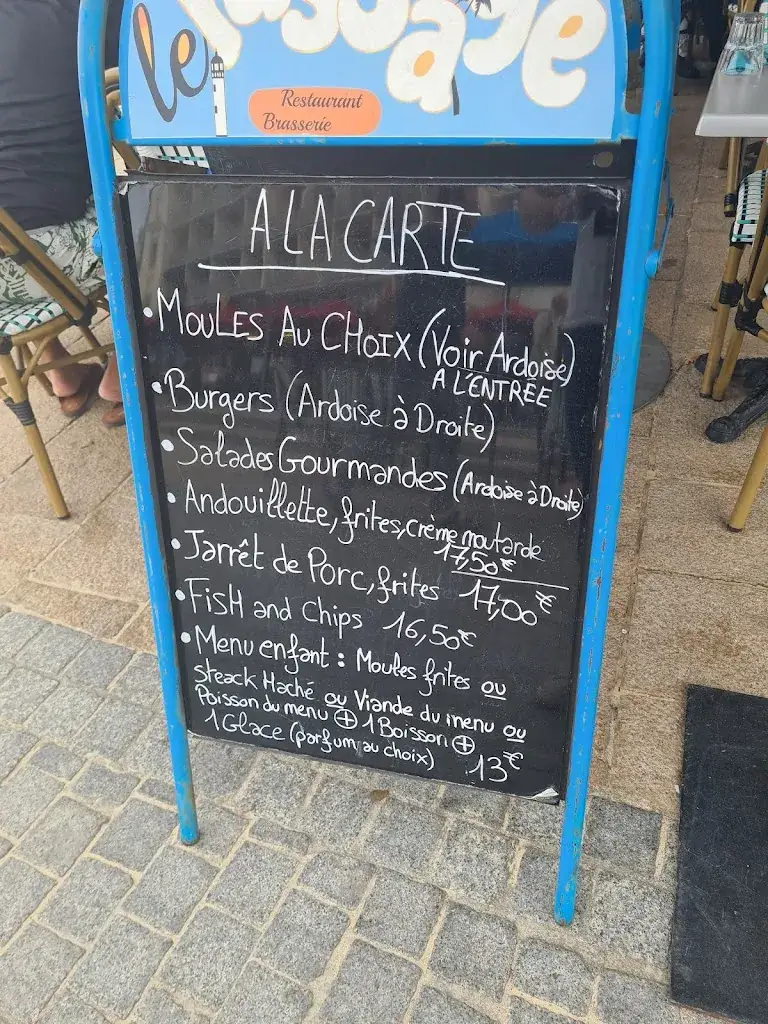 le
Restaurant
Brasserie
A LA CARTE
• MOULES AU CHOIX (Voir Ardoise)
A L'ENTRÉE
• Burgers (Ardoise à Droite)
• Salades Gourmandes (Ardoise à Droite)
• Andouillette, frites, crème moutarde
17,50€
• Jarrêt de Porc, frites 17,00€
• FisH and chips 16,50€
• Menu enfant : Moules frites ou
steack Haché ou Viande du menu ou
Poisson du menu ⊕ 1 Boisson ⊕
1 Glace (parfum au choix) 13€